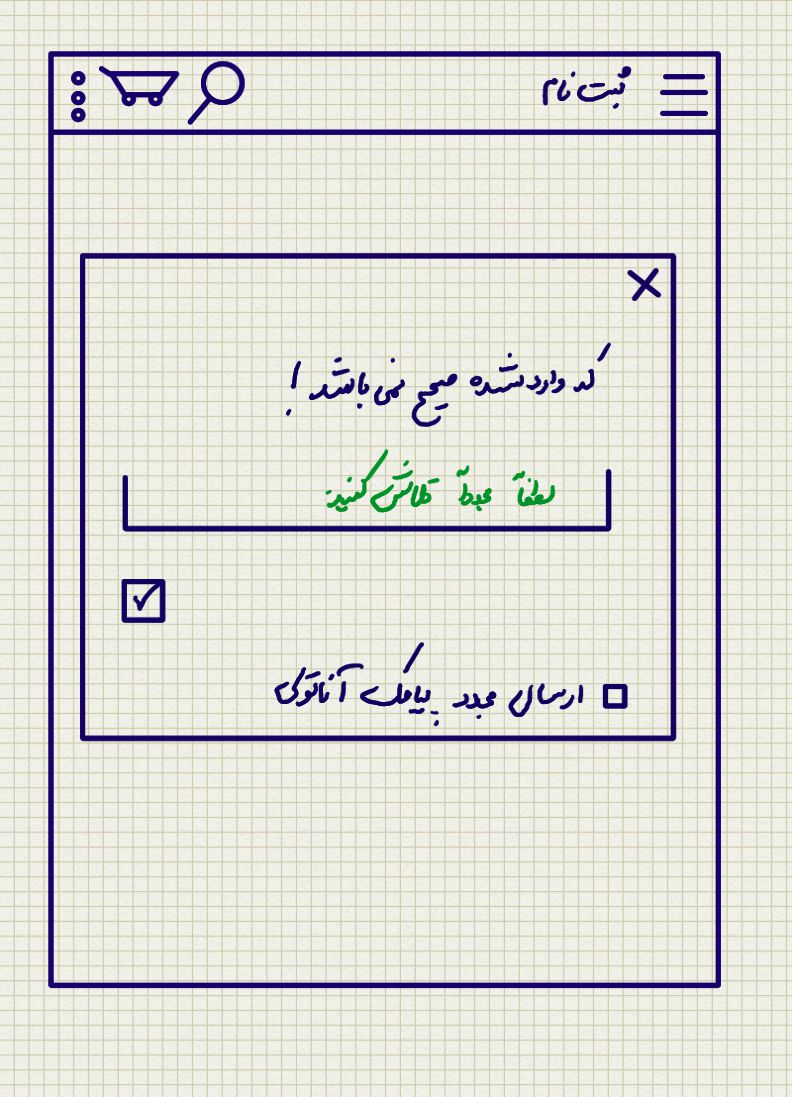 ثبت نام
کد وارد شده صحیح نمی باشد !
لطفاً مجدداً تلاش کنید
ارسال مجدد پیامک آناتوکی